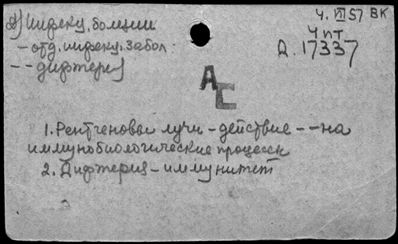 2) Инфекц. болезни
- отд. инфекц. забол.
- - дифтерия
4. VII 57 ВК
Чпт
Д. 17337
АС
1. Рентгеновы лучи - действие - - на
иммунобиологические процессы
2. Дифтерия - иммунитет